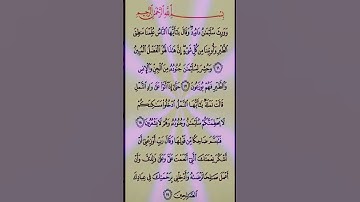 بِسْمِ ٱللَّهِ ٱلرَّحْمَٰنِ ٱلرَّحِيمِ
وَوَرِثَ سُلَيْمَٰنُ دَاوُۥدَ وَقَالَ يَٰٓأَيُّهَا ٱلنَّاسُ عُلِّمْنَا مَنطِقَ
ٱلطَّيْرِ وَأُوتِينَا مِن كُلِّ شَىْءٍ إِنَّ هَٰذَا لَهُوَ ٱلْفَضْلُ ٱلْمُبِينُ
١٦ وَحُشِرَ لِسُلَيْمَٰنَ جُنُودُهُۥ مِنَ ٱلْجِنِّ وَٱلْإِنسِ
وَٱلطَّيْرِ فَهُمْ يُوزَعُونَ ١٧ حَتَّىٰٓ إِذَآ أَتَوْا۟ عَلَىٰ وَادِ ٱلنَّمْلِ
قَالَتْ نَمْلَةٌ يَٰٓأَيُّهَا ٱلنَّمْلُ ٱدْخُلُوا۟ مَسَٰكِنَكُمْ
لَا يَحْطِمَنَّكُمْ سُلَيْمَٰنُ وَجُنُودُهُۥ وَهُمْ لَا يَشْعُرُونَ ١٨
فَتَبَسَّمَ ضَاحِكًا مِّن قَوْلِهَا وَقَالَ رَبِّ أَوْزِعْنِىٓ أَنْ
أَشْكُرَ نِعْمَتَكَ ٱلَّتِىٓ أَنْعَمْتَ عَلَىَّ وَعَلَىٰ وَٰلِدَىَّ وَأَنْ
أَعْمَلَ صَٰلِحًا تَرْضَىٰهُ وَأَدْخِلْنِى بِرَحْمَتِكَ فِى عِبَادِكَ
ٱلصَّٰلِحِينَ ١٩